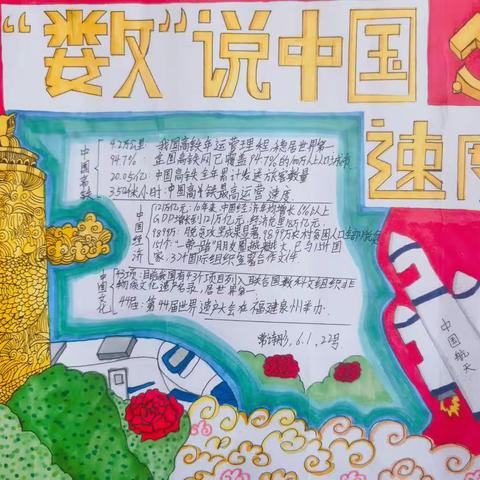 “数”说中国
速度
中国高铁
4.2万公里：我国高铁年运营里程，稳居世界第一
94.7%：全国高铁网已覆盖94.7%的100万人口以上城市
20.05亿：中国高铁全年累计发送旅客数量
350km/小时：中国高铁最高运营速度
中国经济
121万亿元：10年来，中国经济年均增长6%以上
GDP增长到121万亿元，经济总量18万亿元
9899万：脱贫攻坚成果显著，9899万农村贫困人口全部脱贫
151个：“一带一路”朋友圈越来越大，已与151个国
家、32个国际组织签署合作文件
中国文化
43项：目前我国有43个项目列入联合国教科文组织非
物质文化遗产名录，居世界第一
44届：第44届世界遗产大会在福建泉州举办
6.1，22号
中国航天